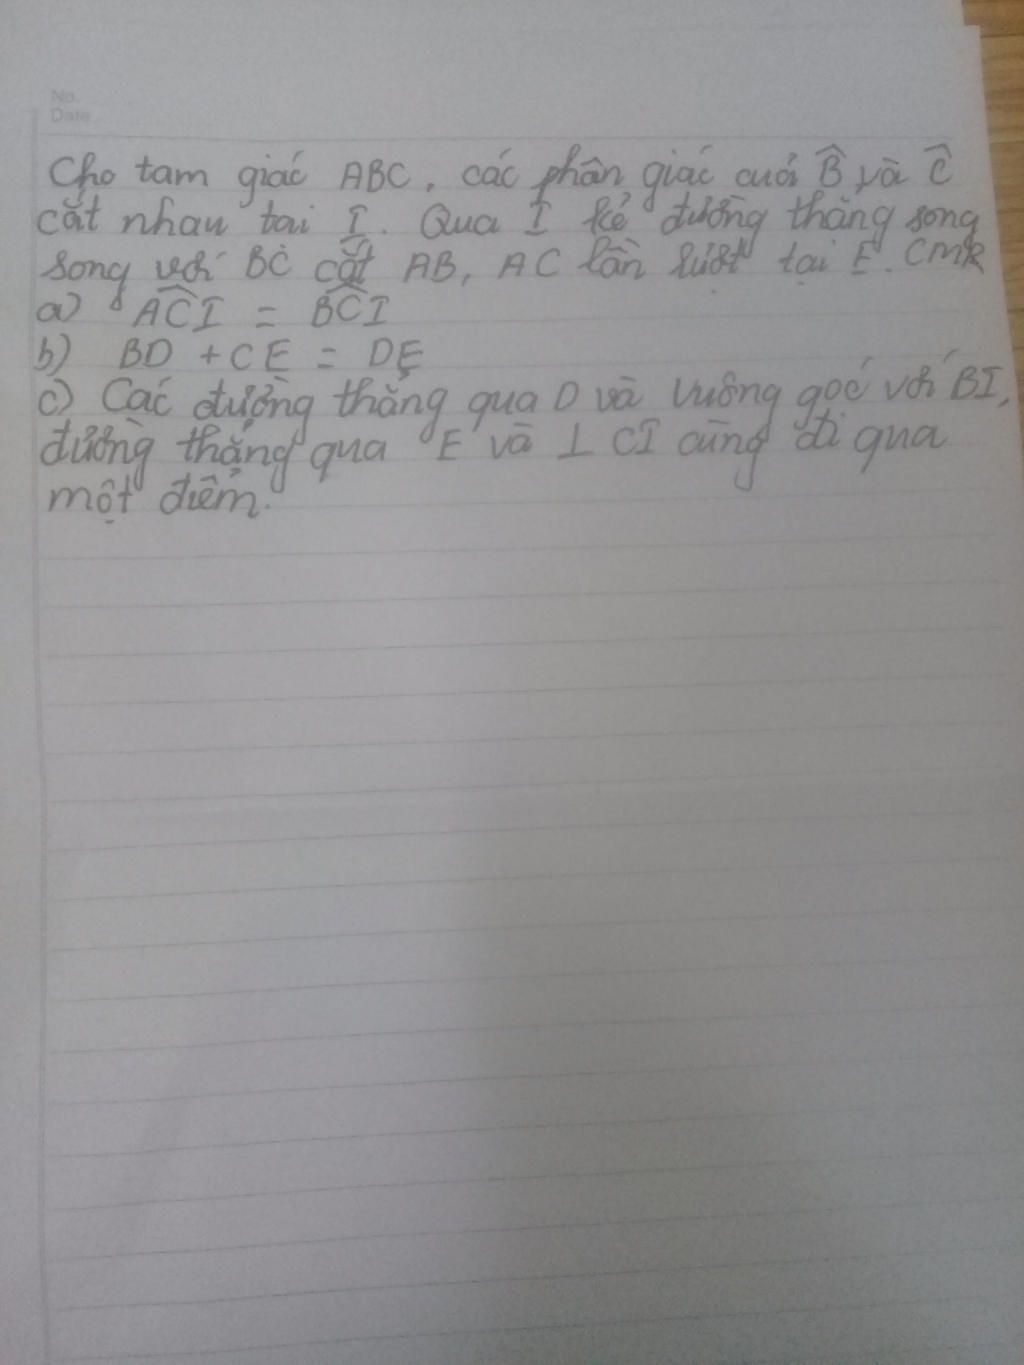 No.
Date
Cho tam giác ABC, các phân giác cuả B̂ và Ĉ
cắt nhau tai I. Qua I kẻ đường thẳng song
song với BC cắt AB, AC lần lượt tại E. CMR
a) AĈI = BĈI
b) BD + CE = DE
c) Các đường thẳng qua D và vuông góc với BI,
đường thẳng qua E và ⊥ CI cùng đi qua
một điểm.